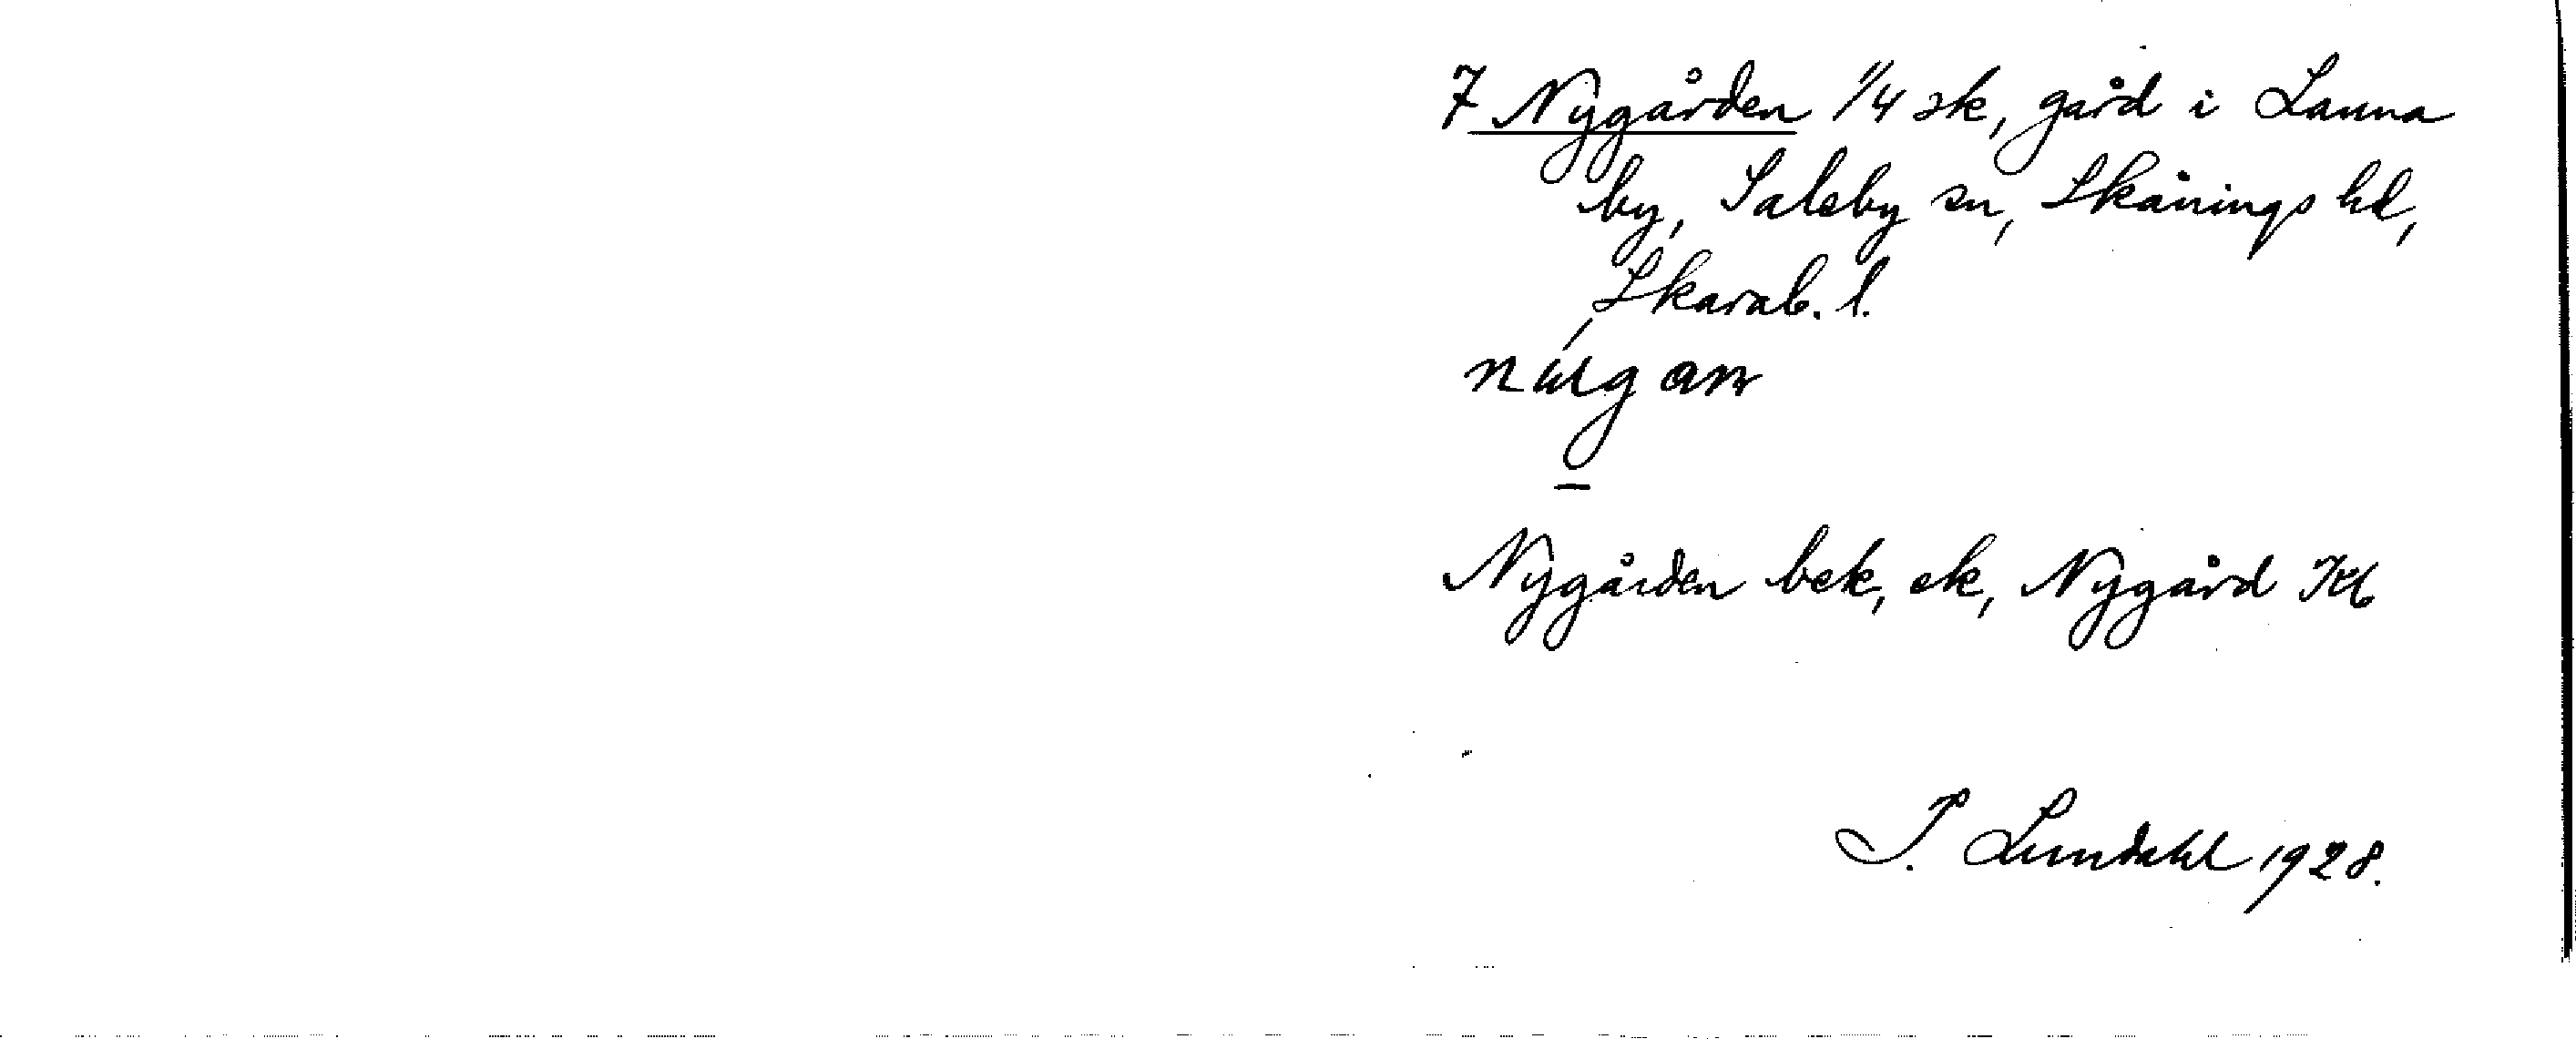 7 Nygården 1/4 sk, gård i Lanna
by, Saleby sn, Skånings hd,
Skarab. l.
Nygården bek, ek, Nygård Jb
I. Lundahl 1928.